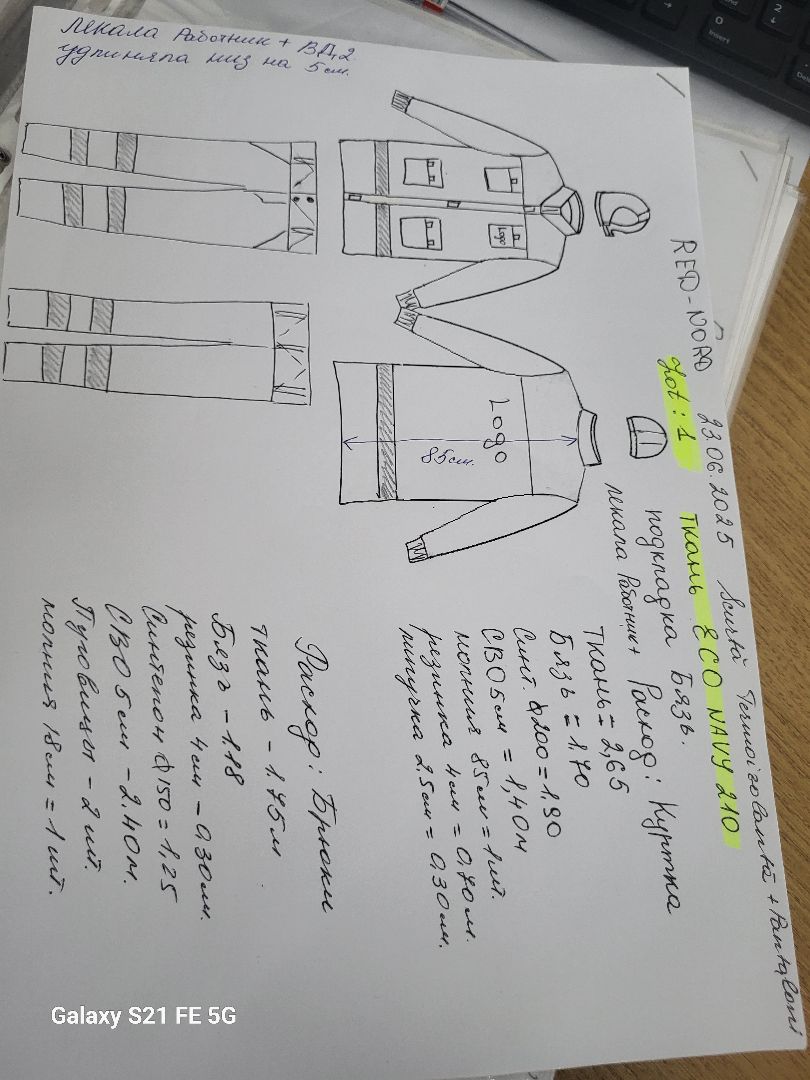 RED-NORD 23.06.2025 Scurtă Termoizolantă + Pantaloni
Lot: 1 ткань ECO NAVY 210
подкладка Бязь.
лекала Работник+ Расход: Куртка
Ткань = 2,65
Бязь = 1.70
Синт. ф200 = 1,90
СВО 5см = 1,40м
молния 85см = 1шт.
резинка 4см = 0,70м.
липучка 2,5см = 0,30м.
Logo
Logo
85см.
Расход: Брюки
Ткань - 1.75м
Бязь - 1.18
резинка 4см - 0,30м.
Синтепон ф150 = 1,25
СВО 5см - 2.40м.
Пуговицы - 2шт.
молния 18см = 1шт.
лекала Работник + ВД,2.
удлиняла низ на 5см.
Galaxy S21 FE 5G
0
Insert
2